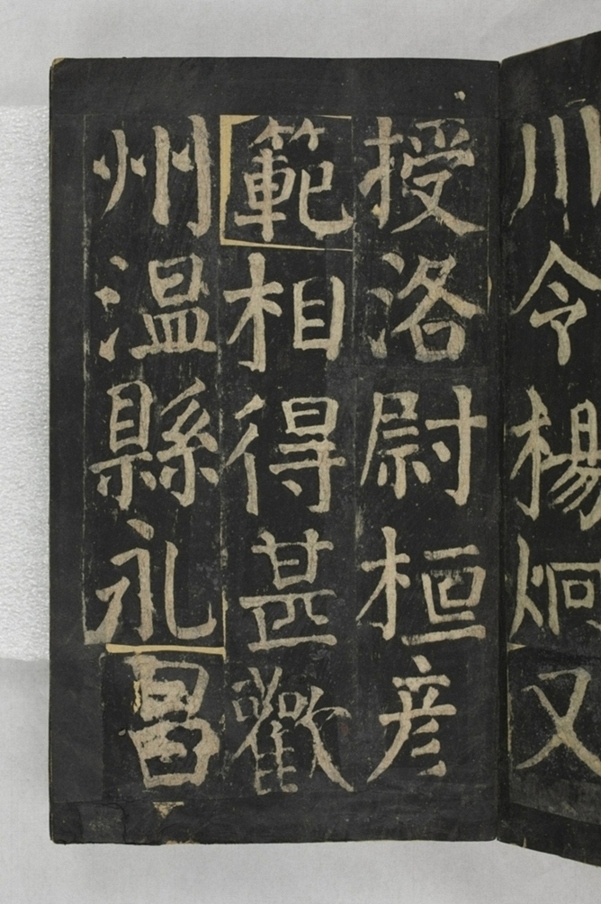 川令楊炯又
授洛尉桓彥
範相得甚歡
州温縣永昌